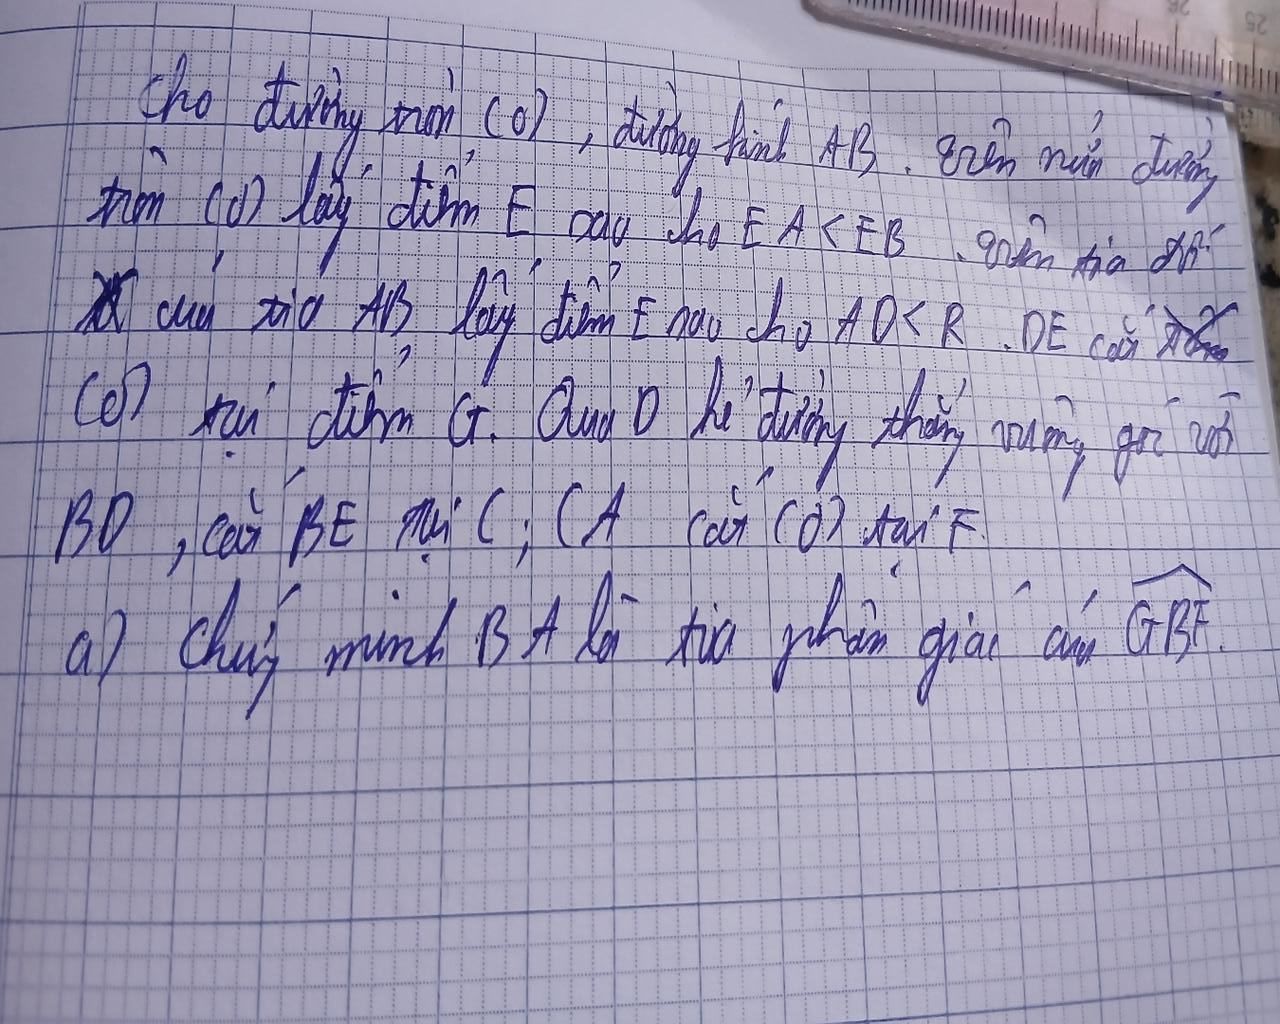 Cho đường tròn (O), đường kính AB. Trên nửa đường
tròn (O) lấy điểm E sao cho EA < EB. Trên tia đối
của tia AB lấy điểm E sao cho AD < R. DE cắt
(O) tại điểm G. Qua D kẻ đường thẳng vuông góc với
BD, cắt BE tại C; CA cắt (O) tại F.
a) Chứng minh BA là tia phân giác của GBF.
26 25